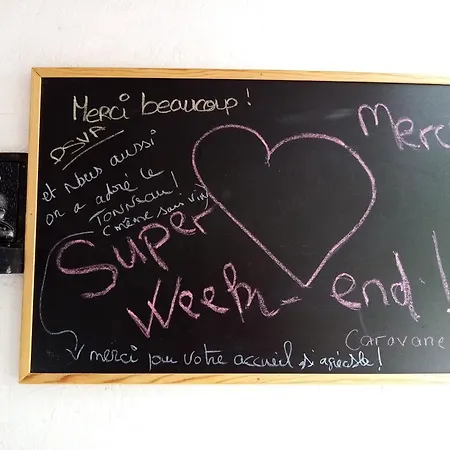 Merci beaucoup !
DSVA
et Nous aussi
on a adoré le
TONNEAU !
(même sans vin)
Merci
Super
Week-end !
Caravane
merci pour votre accueil si agréable !